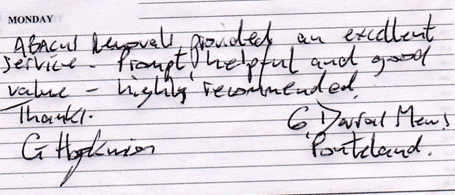 MONDAY
Abacus Removals provided an excellent
service - Prompt, helpful and good
value - highly recommended.
Thanks.
6 Mews
Ponteland.